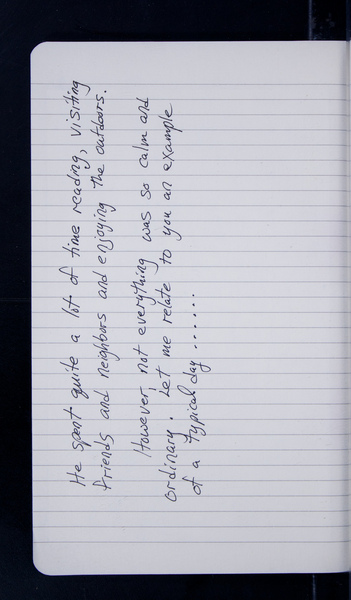 He spent quite a lot of time reading, visiting
friends and neighbors and enjoying the outdoors.
However not everything was so calm and
ordinary. Let me relate to you an example
of a typical day ......